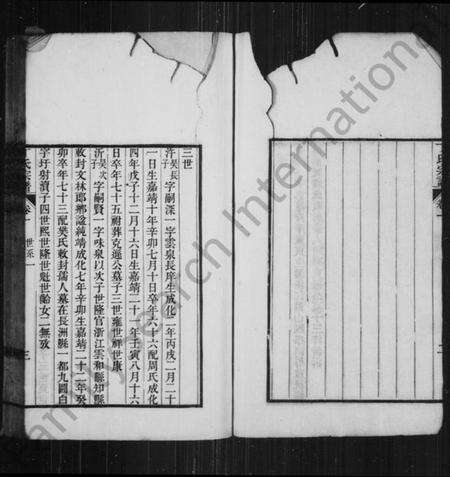 三世
沂 吳長子 字嗣深一字雲泉長庠生成化二年丙戌二月二十
一日生嘉靖十年辛卯七月十日卒年六十六配周氏成化
四年戊子十二月十六日生嘉靖二十一年壬寅八月十六
日卒年七十五祔葬克遜公墓子三世雍世鮮世康
沂 吳次子 字嗣賢一字味泉以次子世隆官浙江雲和縣知縣
敕封文林郎鄉諡純靖成化七年辛卯生嘉靖二十二年癸
卯卒年七十三配吳氏敕封孺人墓在長洲縣一都九圖白
字圩射瀆子四世熙世隆世魁世齡女二無攷
氏宗譜
卷一
世系一
三
氏宗譜
Family Search International